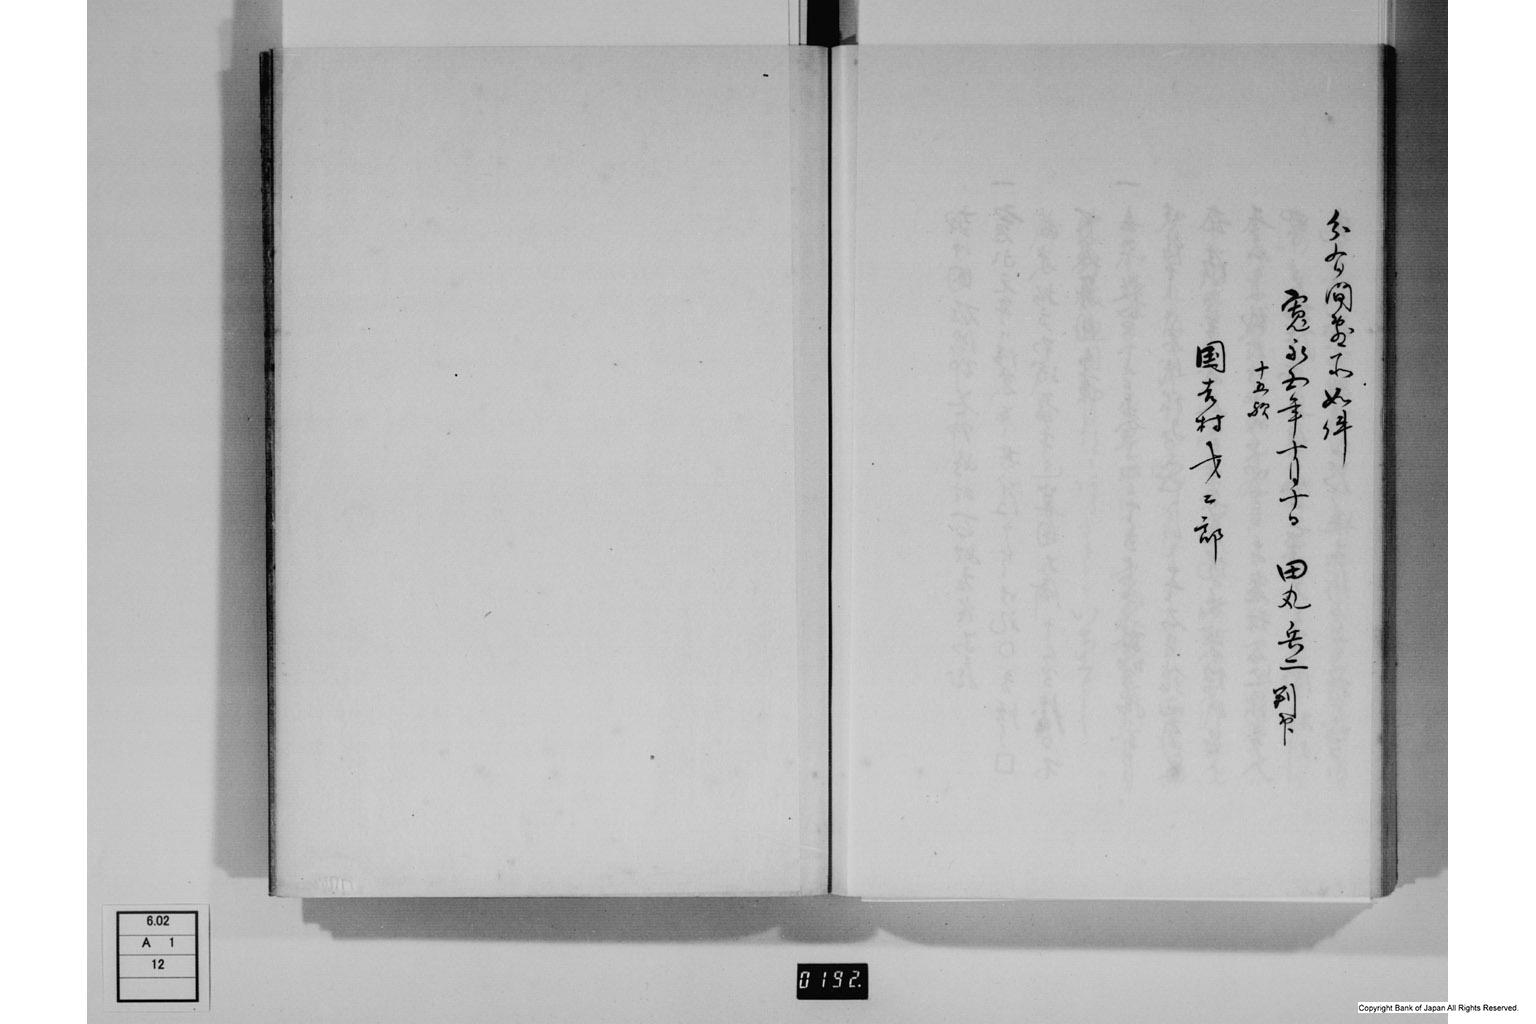 分有間敷候仍如件
寛永五年十月十日 田丸兵二 判印
十五歟
国吉村才二郎
6.02
A 1
12
0192.
Copyright Bank of Japan All Rights Reserved.